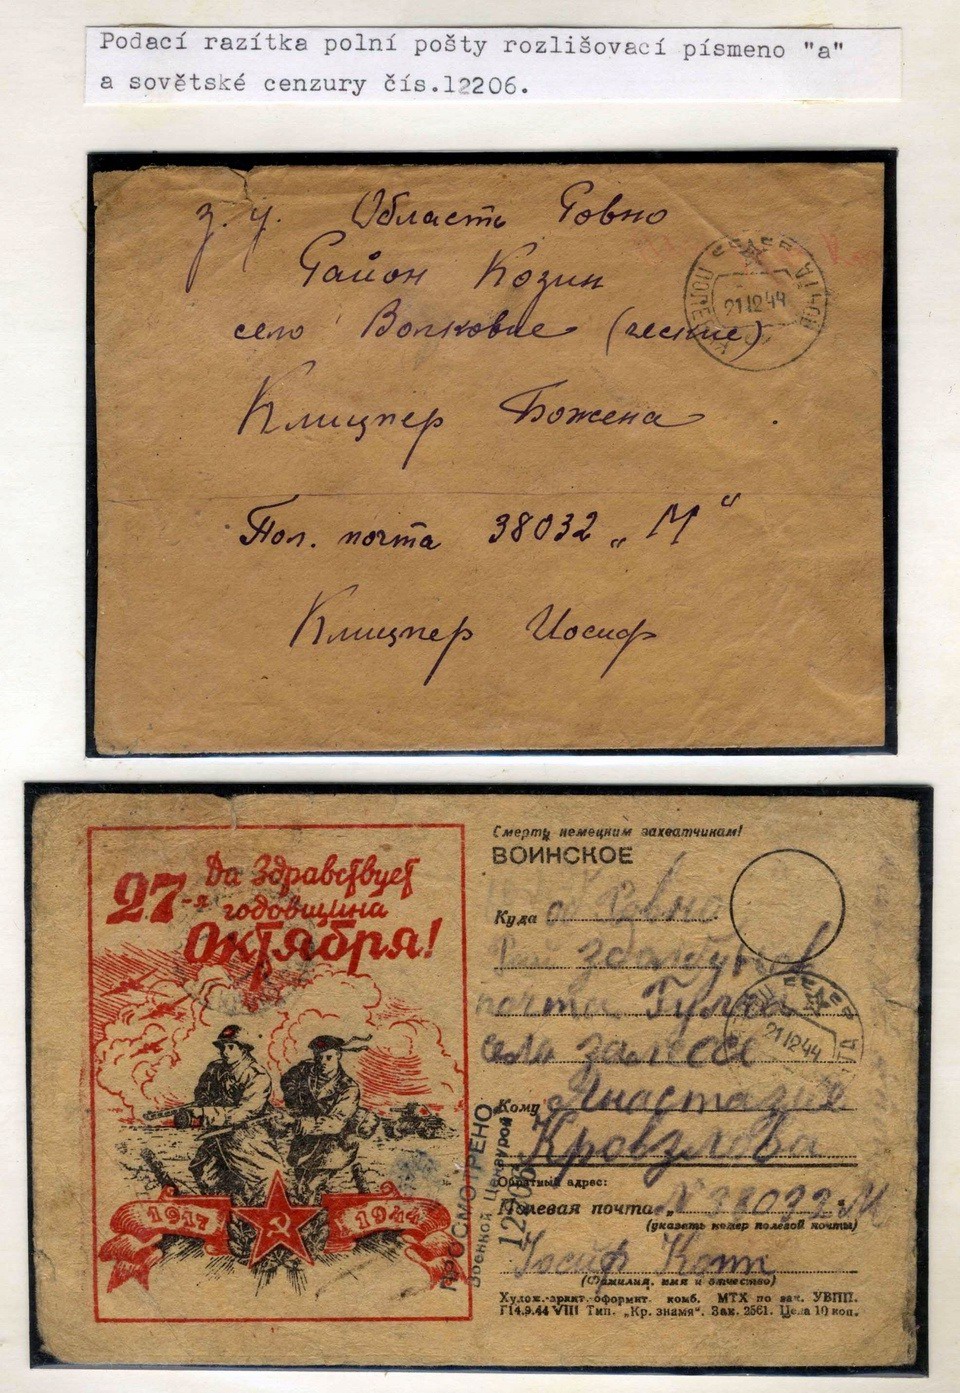 Podací razítka polní pošty rozlišovací písmeno "a"
a sovětské cenzury čís.12206.
З. У. Область Ровно
Район Козин
село Волковие (ческие)
Клицпер Божена
Пол. почта 38032 „М“
Клицпер Иосиф
21 12 44
27-я Да Здравствует
годовщина
Октября!
1917 1944
Смерть немецким захватчикам!
ВОИНСКОЕ
Куда о Ровно
почта Гульча
село
21 12 44
Кому Анастазие
Обратный адрес:
Полевая почта № 38032 М
(указать номер полевой почты)
Иосиф
(Фамилия, имя и отчество)
Худож.-аркт.-оформит. комб. МТХ по зак. УВПП.
Г14.9.44 VIII Тип. „Кр. знамя“. Зак. 2561. Цена 10 коп.
ПРОСМОТРЕНО
Военной Цензурой
12206